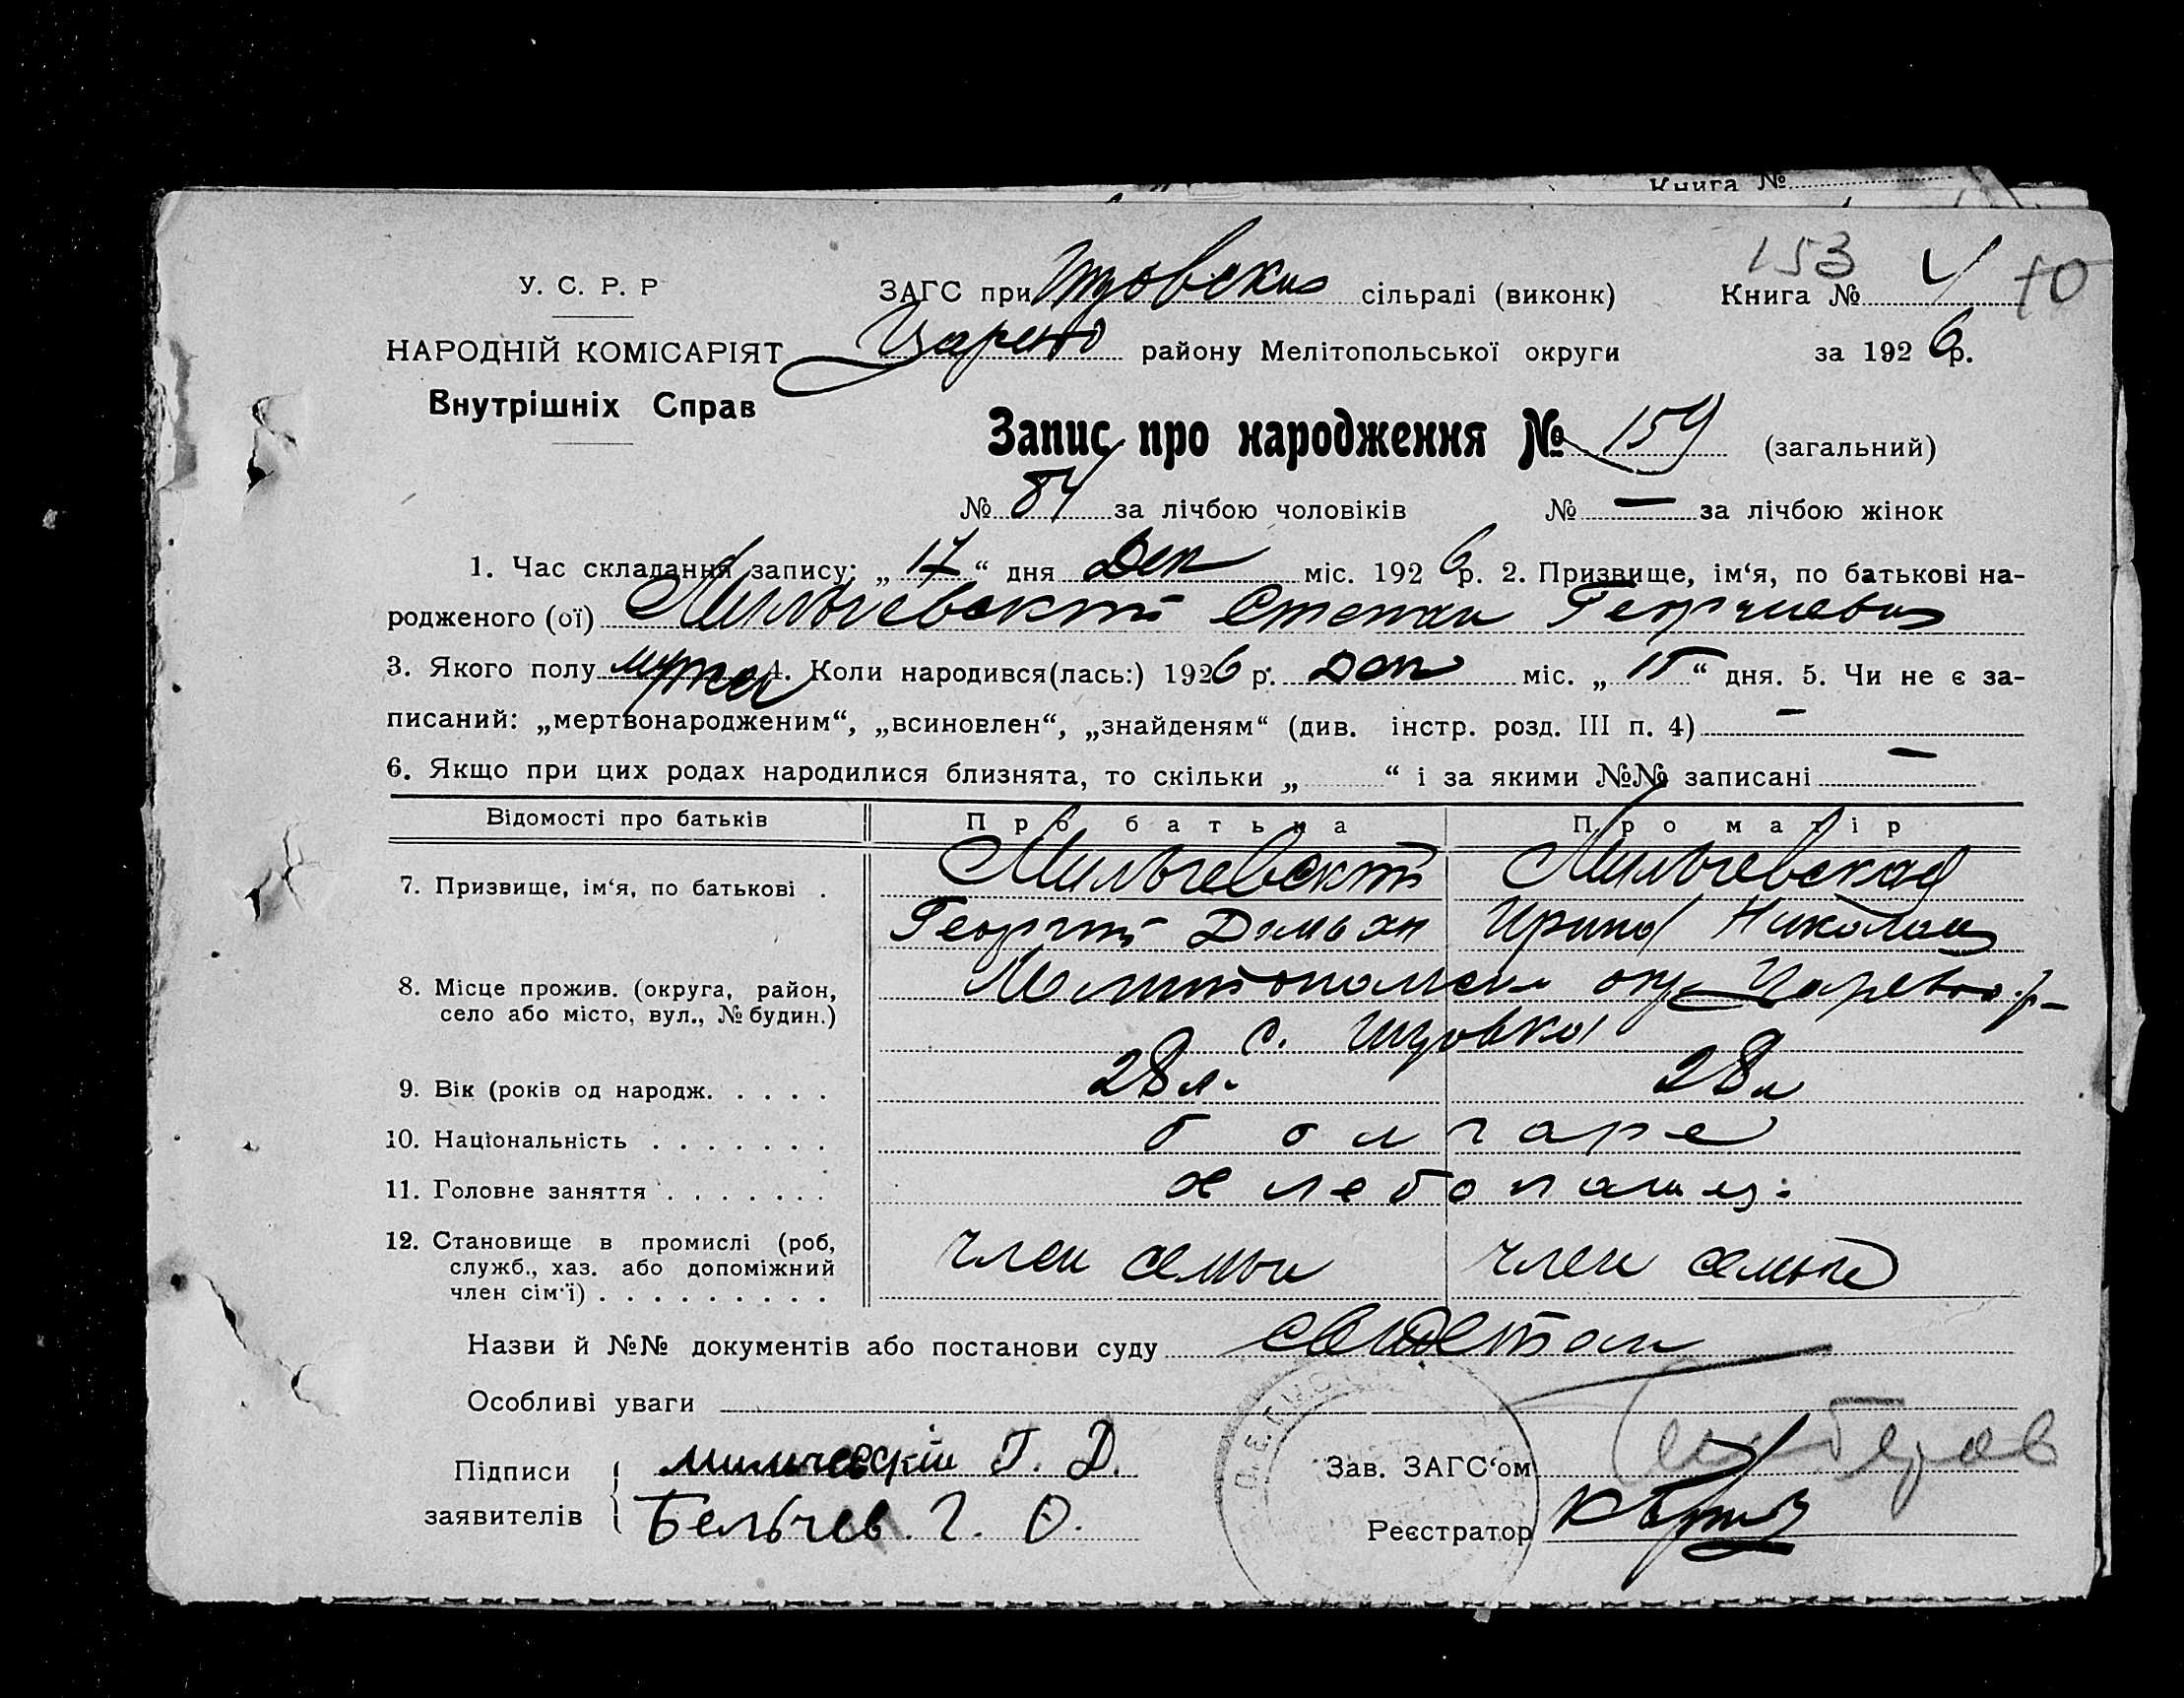 Книга №
153 10
У. С. Р. Р
НАРОДНІЙ КОМІСАРІЯТ
Внутрішніх Справ
ЗАГС при сільраді (виконк) Книга № 4
Царево району Мелітопольської округи за 1926 р.
Запис про народження № 159 (загальний)
№ 84 за лічбою чоловіків № — за лічбою жінок
1. Час складання запису: „17“ дня Дек міс. 1926 р. 2. Призвище, ім‘я, по батькові на-
родженого (ої) Мильчевский Степан Георгиевич
3. Якого полу мужск 4. Коли народився(лась:) 1926 р. Дек міс. „15“ дня. 5. Чи не є за-
писаний: „мертвонародженим“, „всиновлен“, „знайденям“ (див. інстр. розд. III п. 4) —
6. Якщо при цих родах народилися близнята, то скільки „ “ і за якими №№ записані —
Відомості про батьків Про батька Про матір
7. Призвище, ім‘я, по батькові . Мильчевский Мильчевская
Георгий Демьян Ирина Николаев
8. Місце прожив. (округа, район, село або місто, вул., № будин.) Мелитопольск окр Царево р-
с.
9. Вік (років од народж. . . . . 28 л. 28 л
10. Національність . . . . . . . болгаре
11. Головне заняття . . . . . . . хлебопашц.
12. Становище в промислі (роб, служб., хаз. або допоміжний член сім‘ї) . . . . . . . . . член семьи член семьи
Назви й №№ документів або постанови суду
Особливі уваги
Підписи заявителів Мильчевскій Г. Д.
Бельчев Г. Ѳ.
Зав. ЗАГС‘ом
Реєстратор